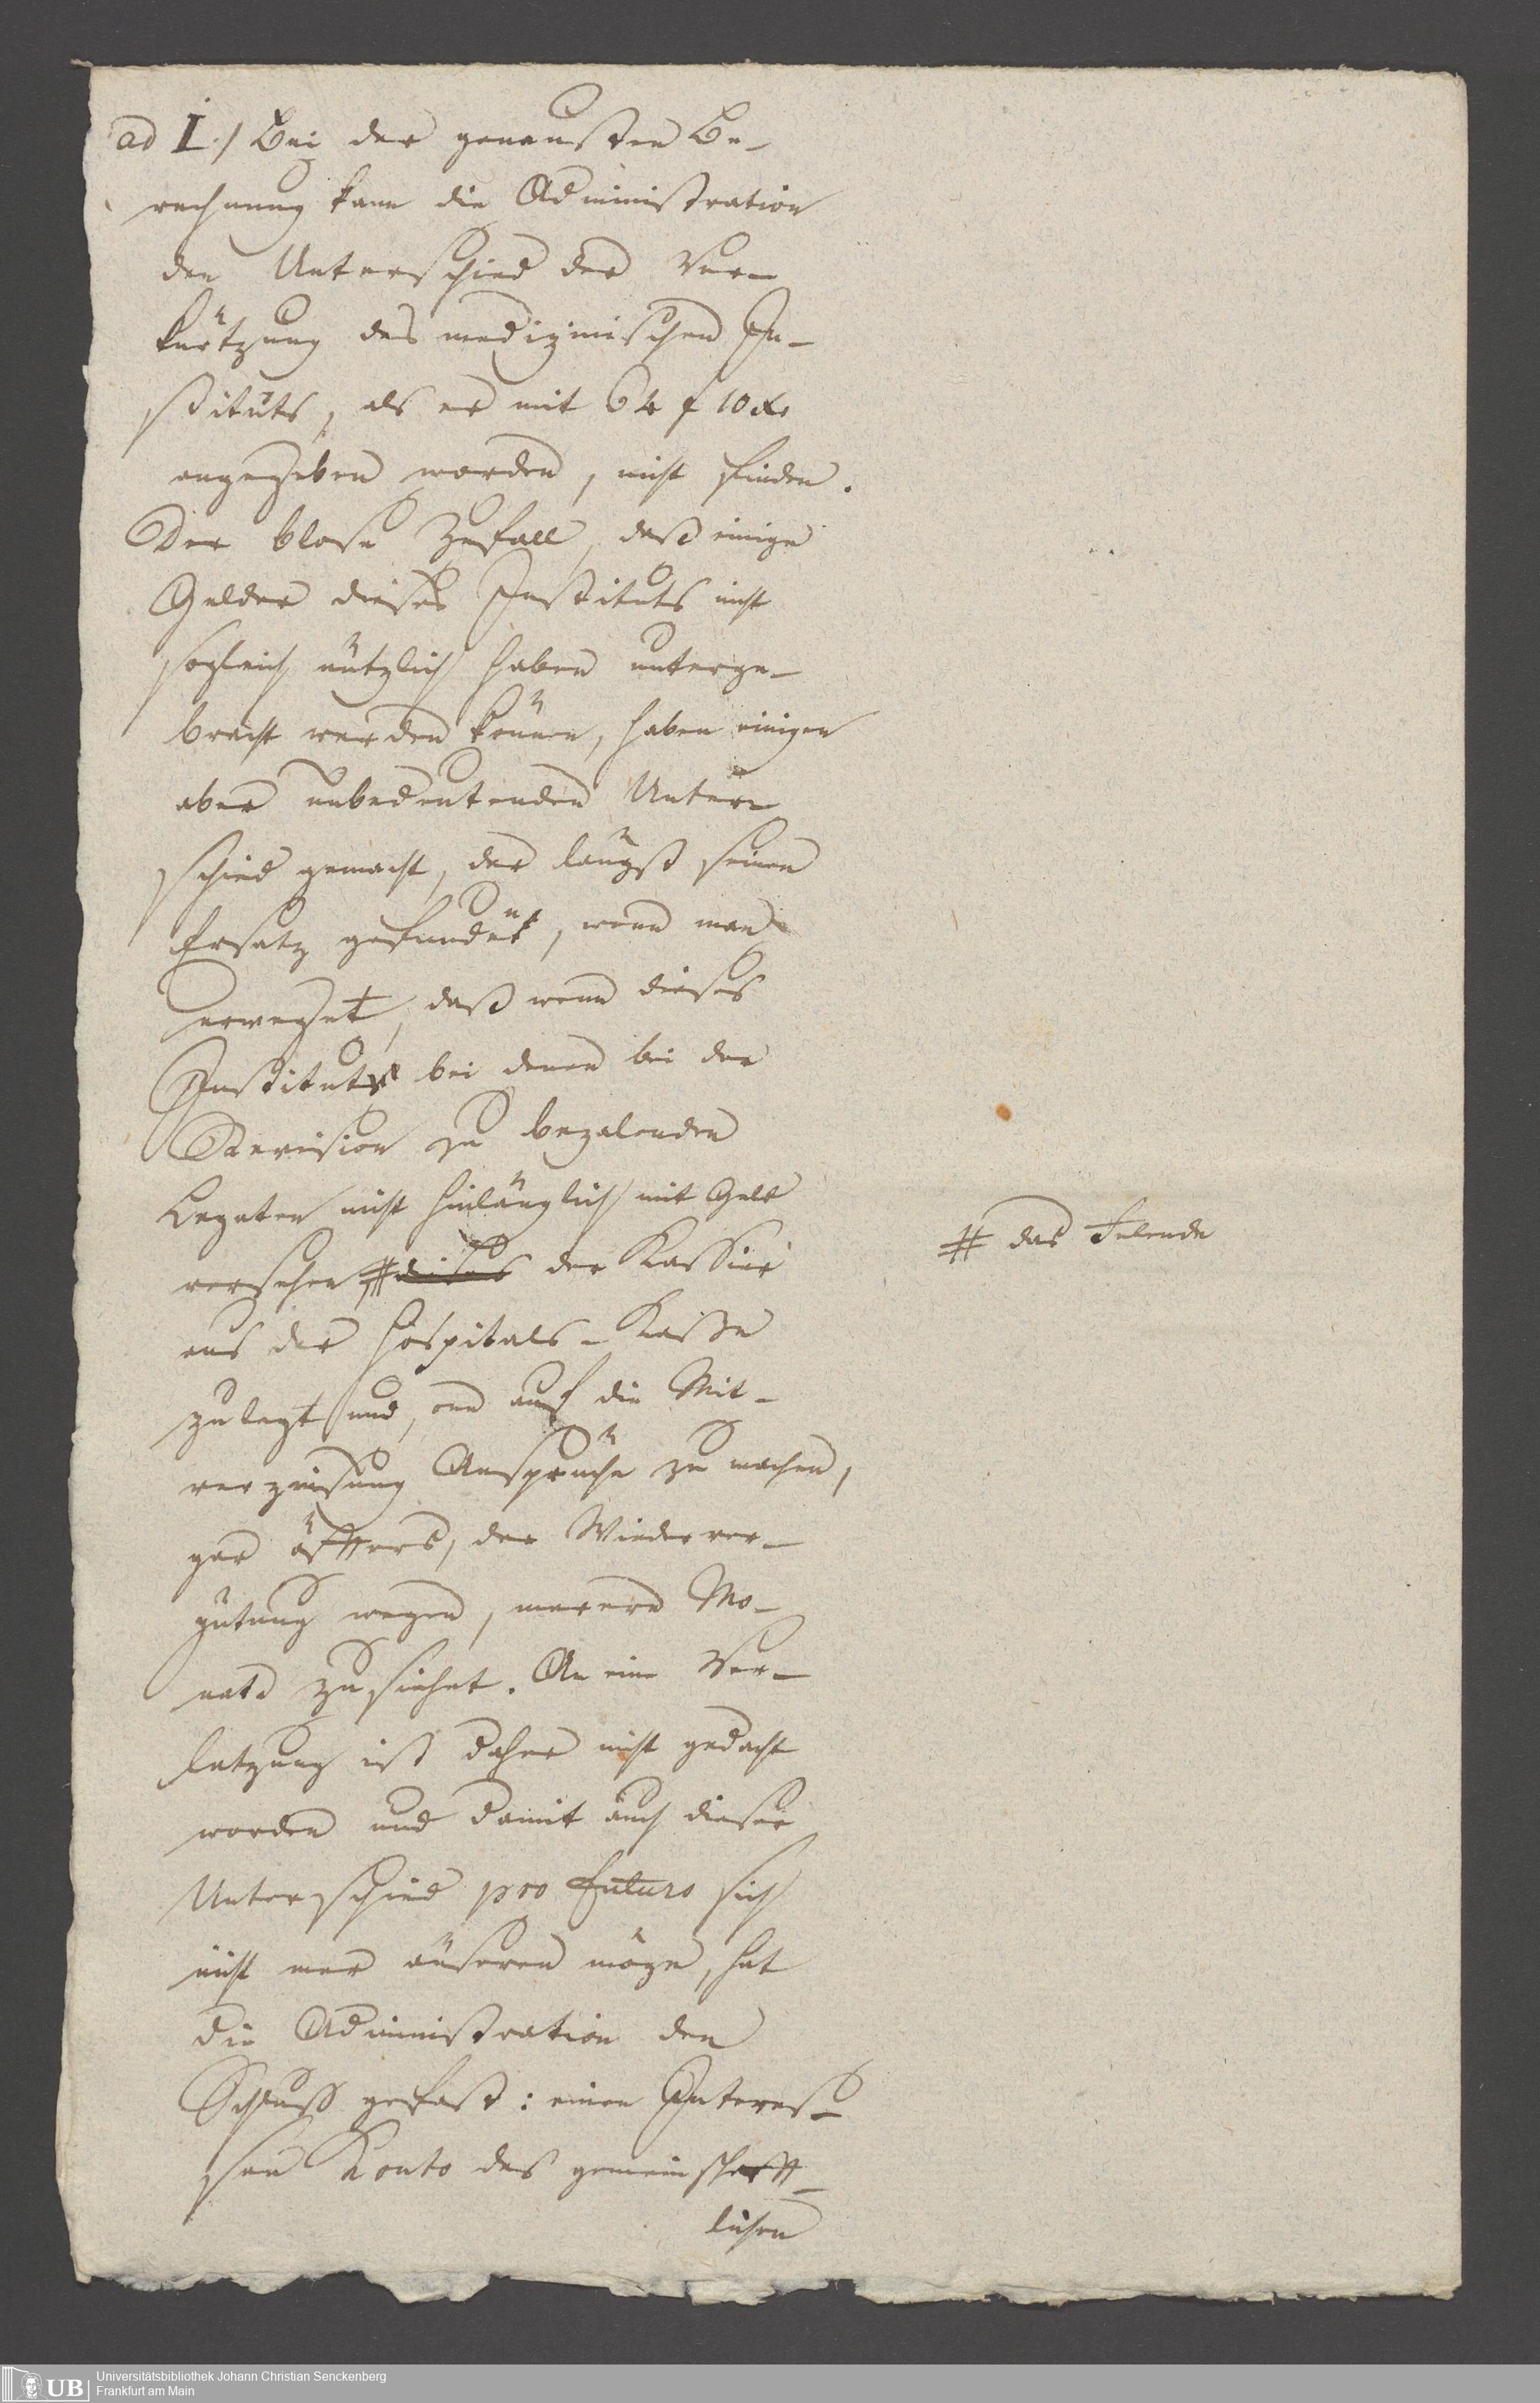 ad I./ Bei der genausten Be-
rechnung kann die Administration
den Unterschied der Ver-
kürtzung des medizinischen In-
stituts, als er mit 64 f 10 xr
angegeben worden, nicht finden.
Der blose Zufall, daß einige
Gelder dieses Instituts nicht
sogleich nützlich haben unterge-
bracht werden können, haben einigen
aber unbedeutenden Unter-
schied gemacht, der längst seinen
Ersatz gefunden, wenn man
erweget, daß wenn dieses
Institut bei denen bei der
Revision zu bezalenden
Legaten nicht hinlänglich mit Geld
versehen # dieses der Kassier
# das Felende
aus der Hospitals-Kasse
zulegt und, one auf die Mit-
verzinsung Ansprüche zu machen,
gar öffters, der Wiederver-
gütung wegen, merere Mo-
nate zusiehet. An eine Ver-
letzung ist daher nicht gedacht
worden und damit auch dieser
Unterschied pro futuro sich
nicht mer äuseren möge, hat
die Administration den
Schluß gefast: einen Interes-
sen Konto des gemeinschafft-
lichen
Universitätsbibliothek Johann Christian Senckenberg
UB Frankfurt am Main